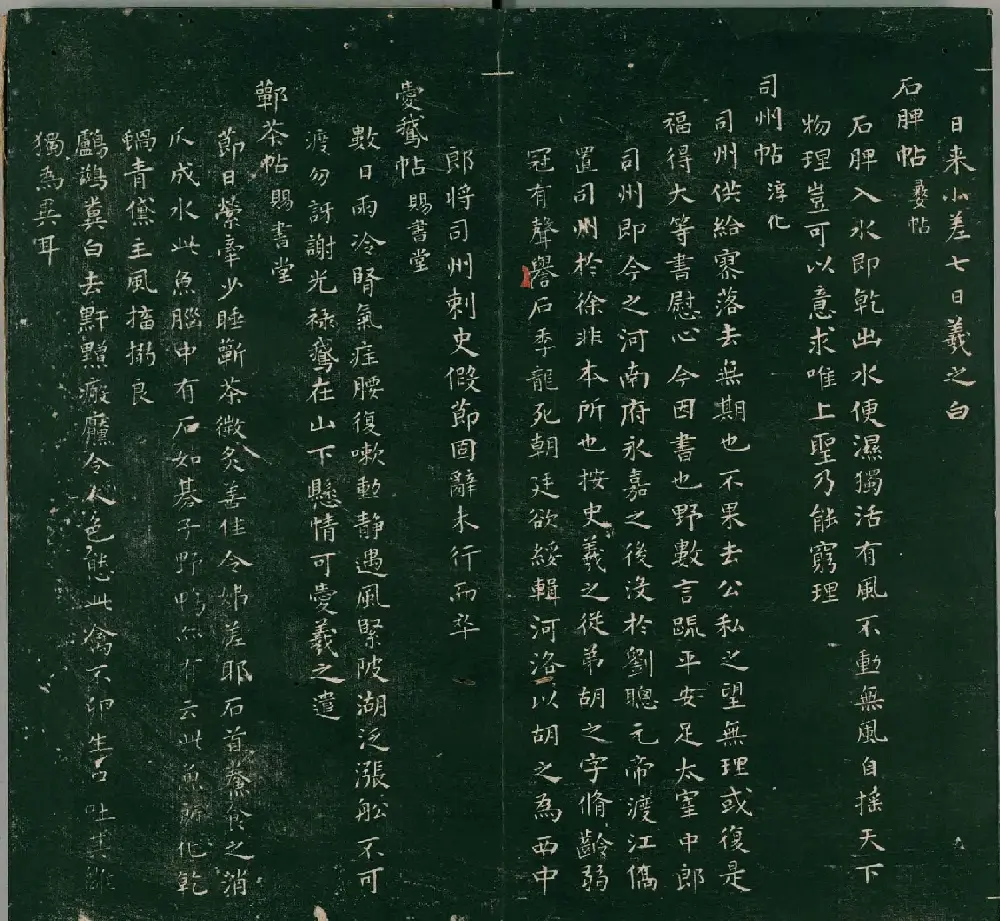 日来小差七日羲之白
石脾帖 䕫帖
石脾入水即乾出水便濕獨活有風不動無風自搖天下
物理豈可以意求唯上聖乃能窮理
司州帖 淳化
司州供給寥落去無期也不果去公私之望無理或復是
福得大等書慰心今因書也野數言疏平安足太宰中郎
司州即今之河南府永嘉之後没於劉聰元帝渡江僑
置司州於徐非本所也按史羲之從弟胡之字脩齡弱
冠有聲譽石季龍死朝廷欲綏輯河洛以胡之為西中
郎將司州刺史假節固辭未行而卒
愛鵞帖 賜書堂
數日雨冷腎氣疰腰復嗽動静遇風緊陂湖泛漲船不可
渡勿訝謝光祿鵞在山下懸情可愛羲之遣
鄿茶帖 賜書堂
節日縈牽少睡蘄茶微炙善佳令姊差耶石首鯗食之消
瓜成水此魚腦中有石如棊子野鴨亦有云此魚所化乾
鍋青黛主風搐搦良
鸕鷀糞白去䵟黯瘢靨令人色態此禽不卵生口吐其雛
獨為異耳